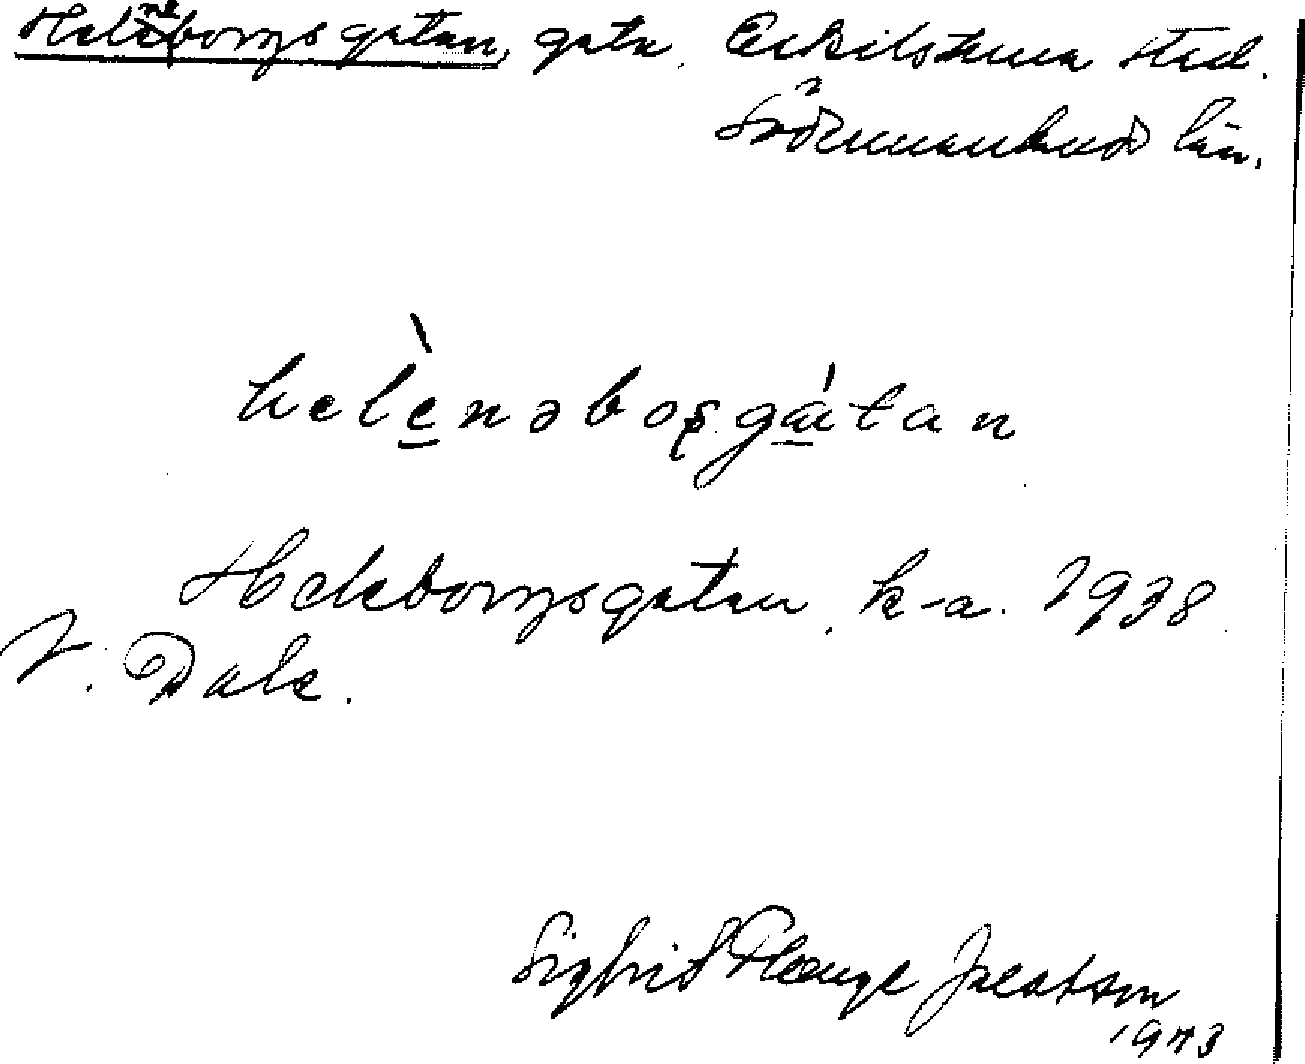 Heleneborgsgatan, gata, Eskilstuna stad.
Södermanlands län.
helènəborgátan
Heleborgsgatan, k-a. 1938
V. Dale.
Sigfrid Hauge Jacobson
1943